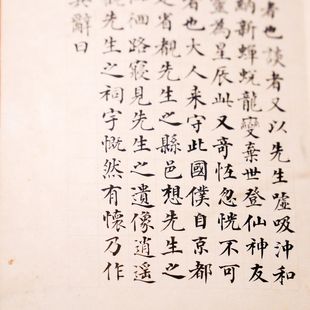 者也談者又以先生噓吸沖和
納新蟬蛻龍變棄世登仙神友
靈為星辰此又奇怪忽恍不可
者也大人来守此國僕自京都
省覩先生之縣邑想先生之
徊路寢見先生之遺像逍遥
觀先生之祠宇慨然有懷乃作
其辭曰